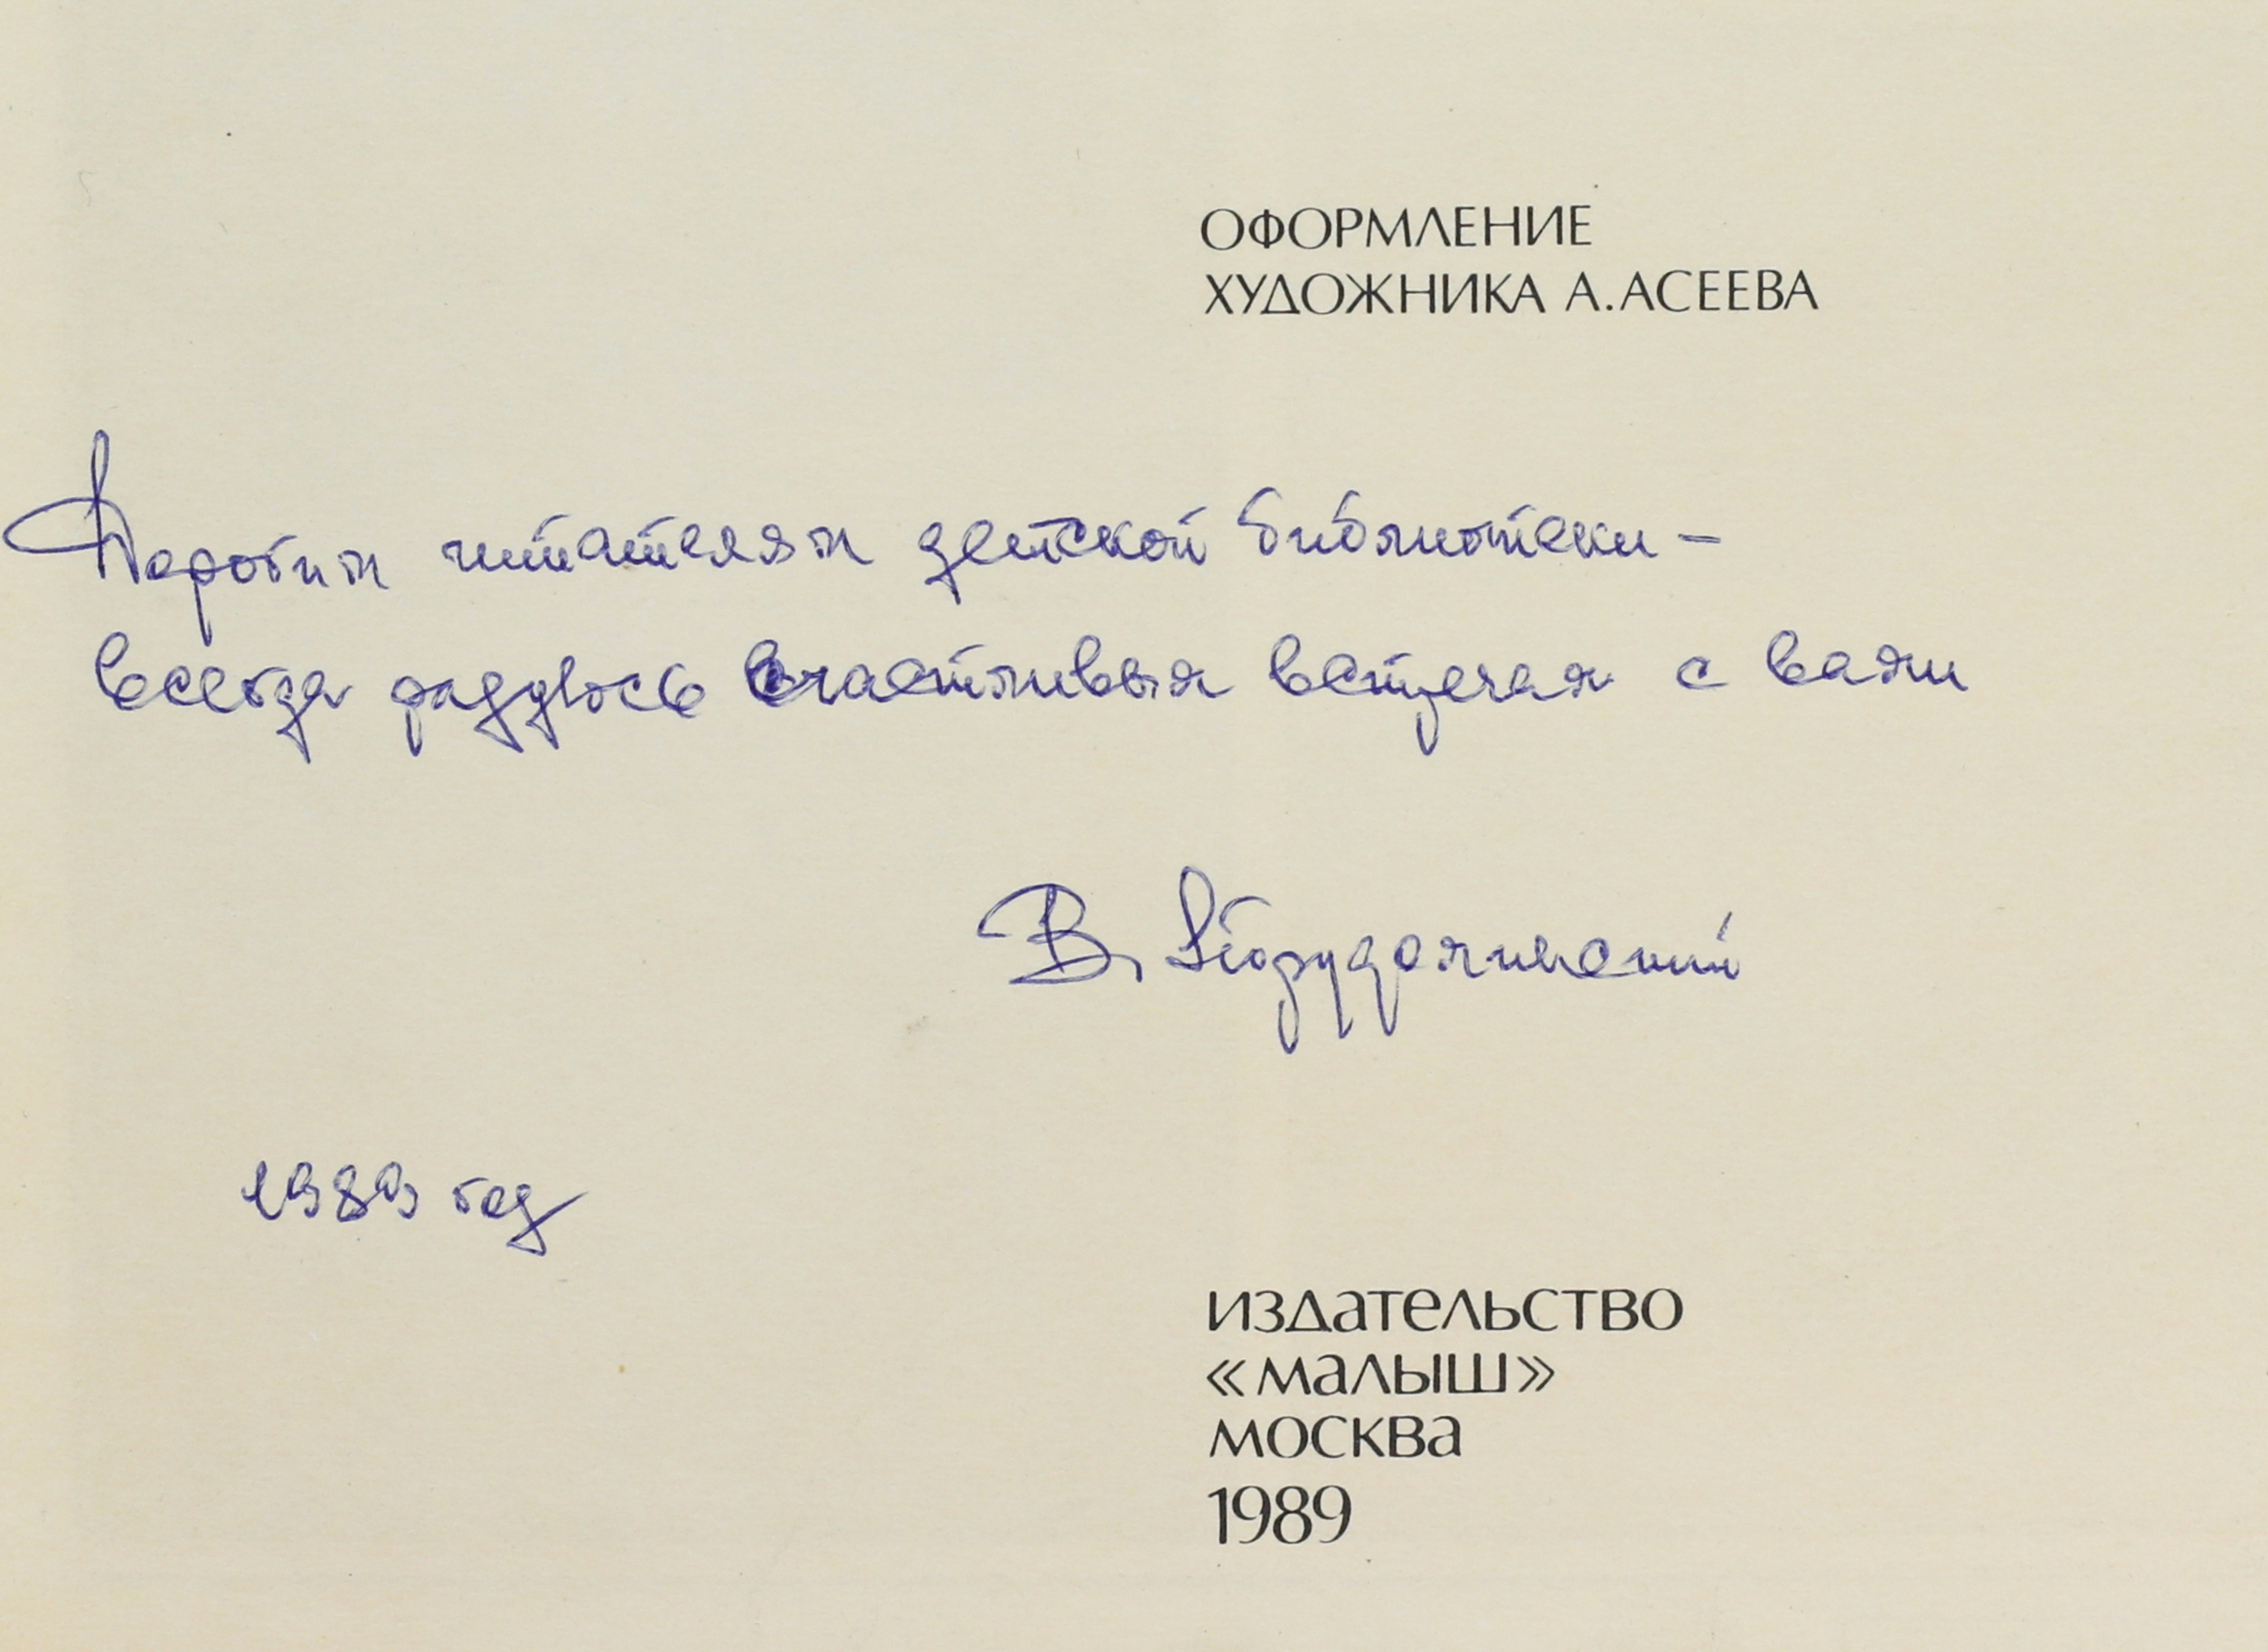 ОФОРМЛЕНИЕ
ХУДОЖНИКА А.АСЕЕВА
Дорогим читателям детской библиотеки –
всегда радуюсь счастливым встречам с вами
В. Порудоминский
1989 год
издательство
«малыш»
москва
1989